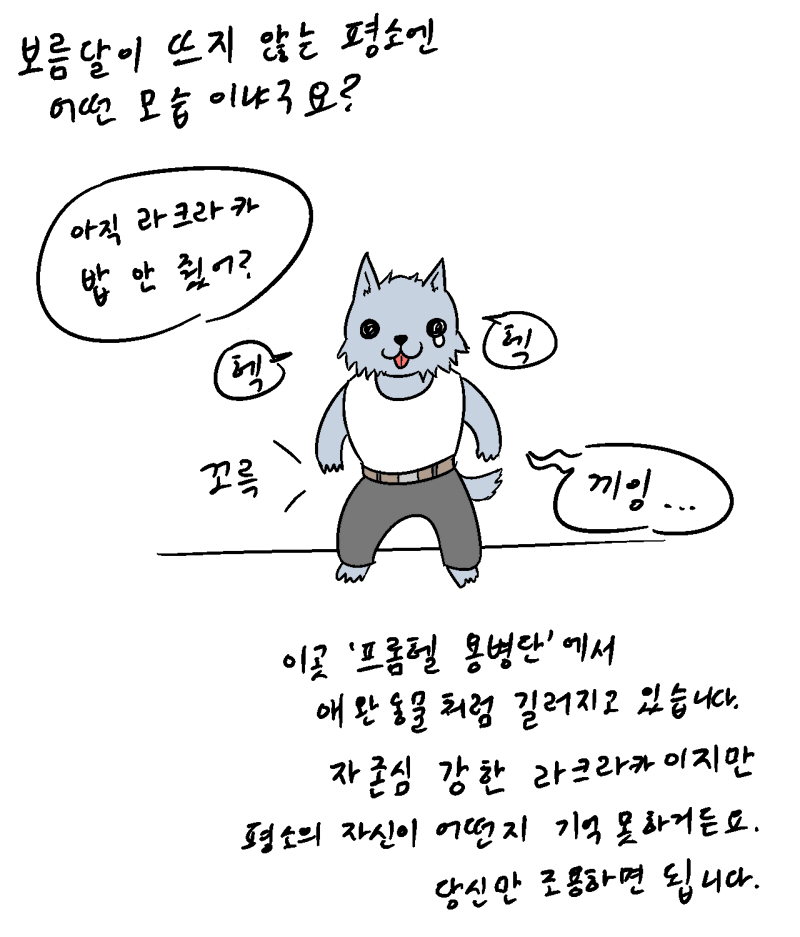 보름달이 뜨지 않는 평소엔
어떤 모습 이냐구요?
아직 라크라카
밥 안 줬어?
헥
헥
꼬륵
끼잉...
이곳 '프롬헬 용병단'에서
애완동물처럼 길러지고 있습니다.
자존심 강한 라크라카이지만
평소의 자신이 어떤지 기억 못하거든요.
당신만 조용하면 됩니다.